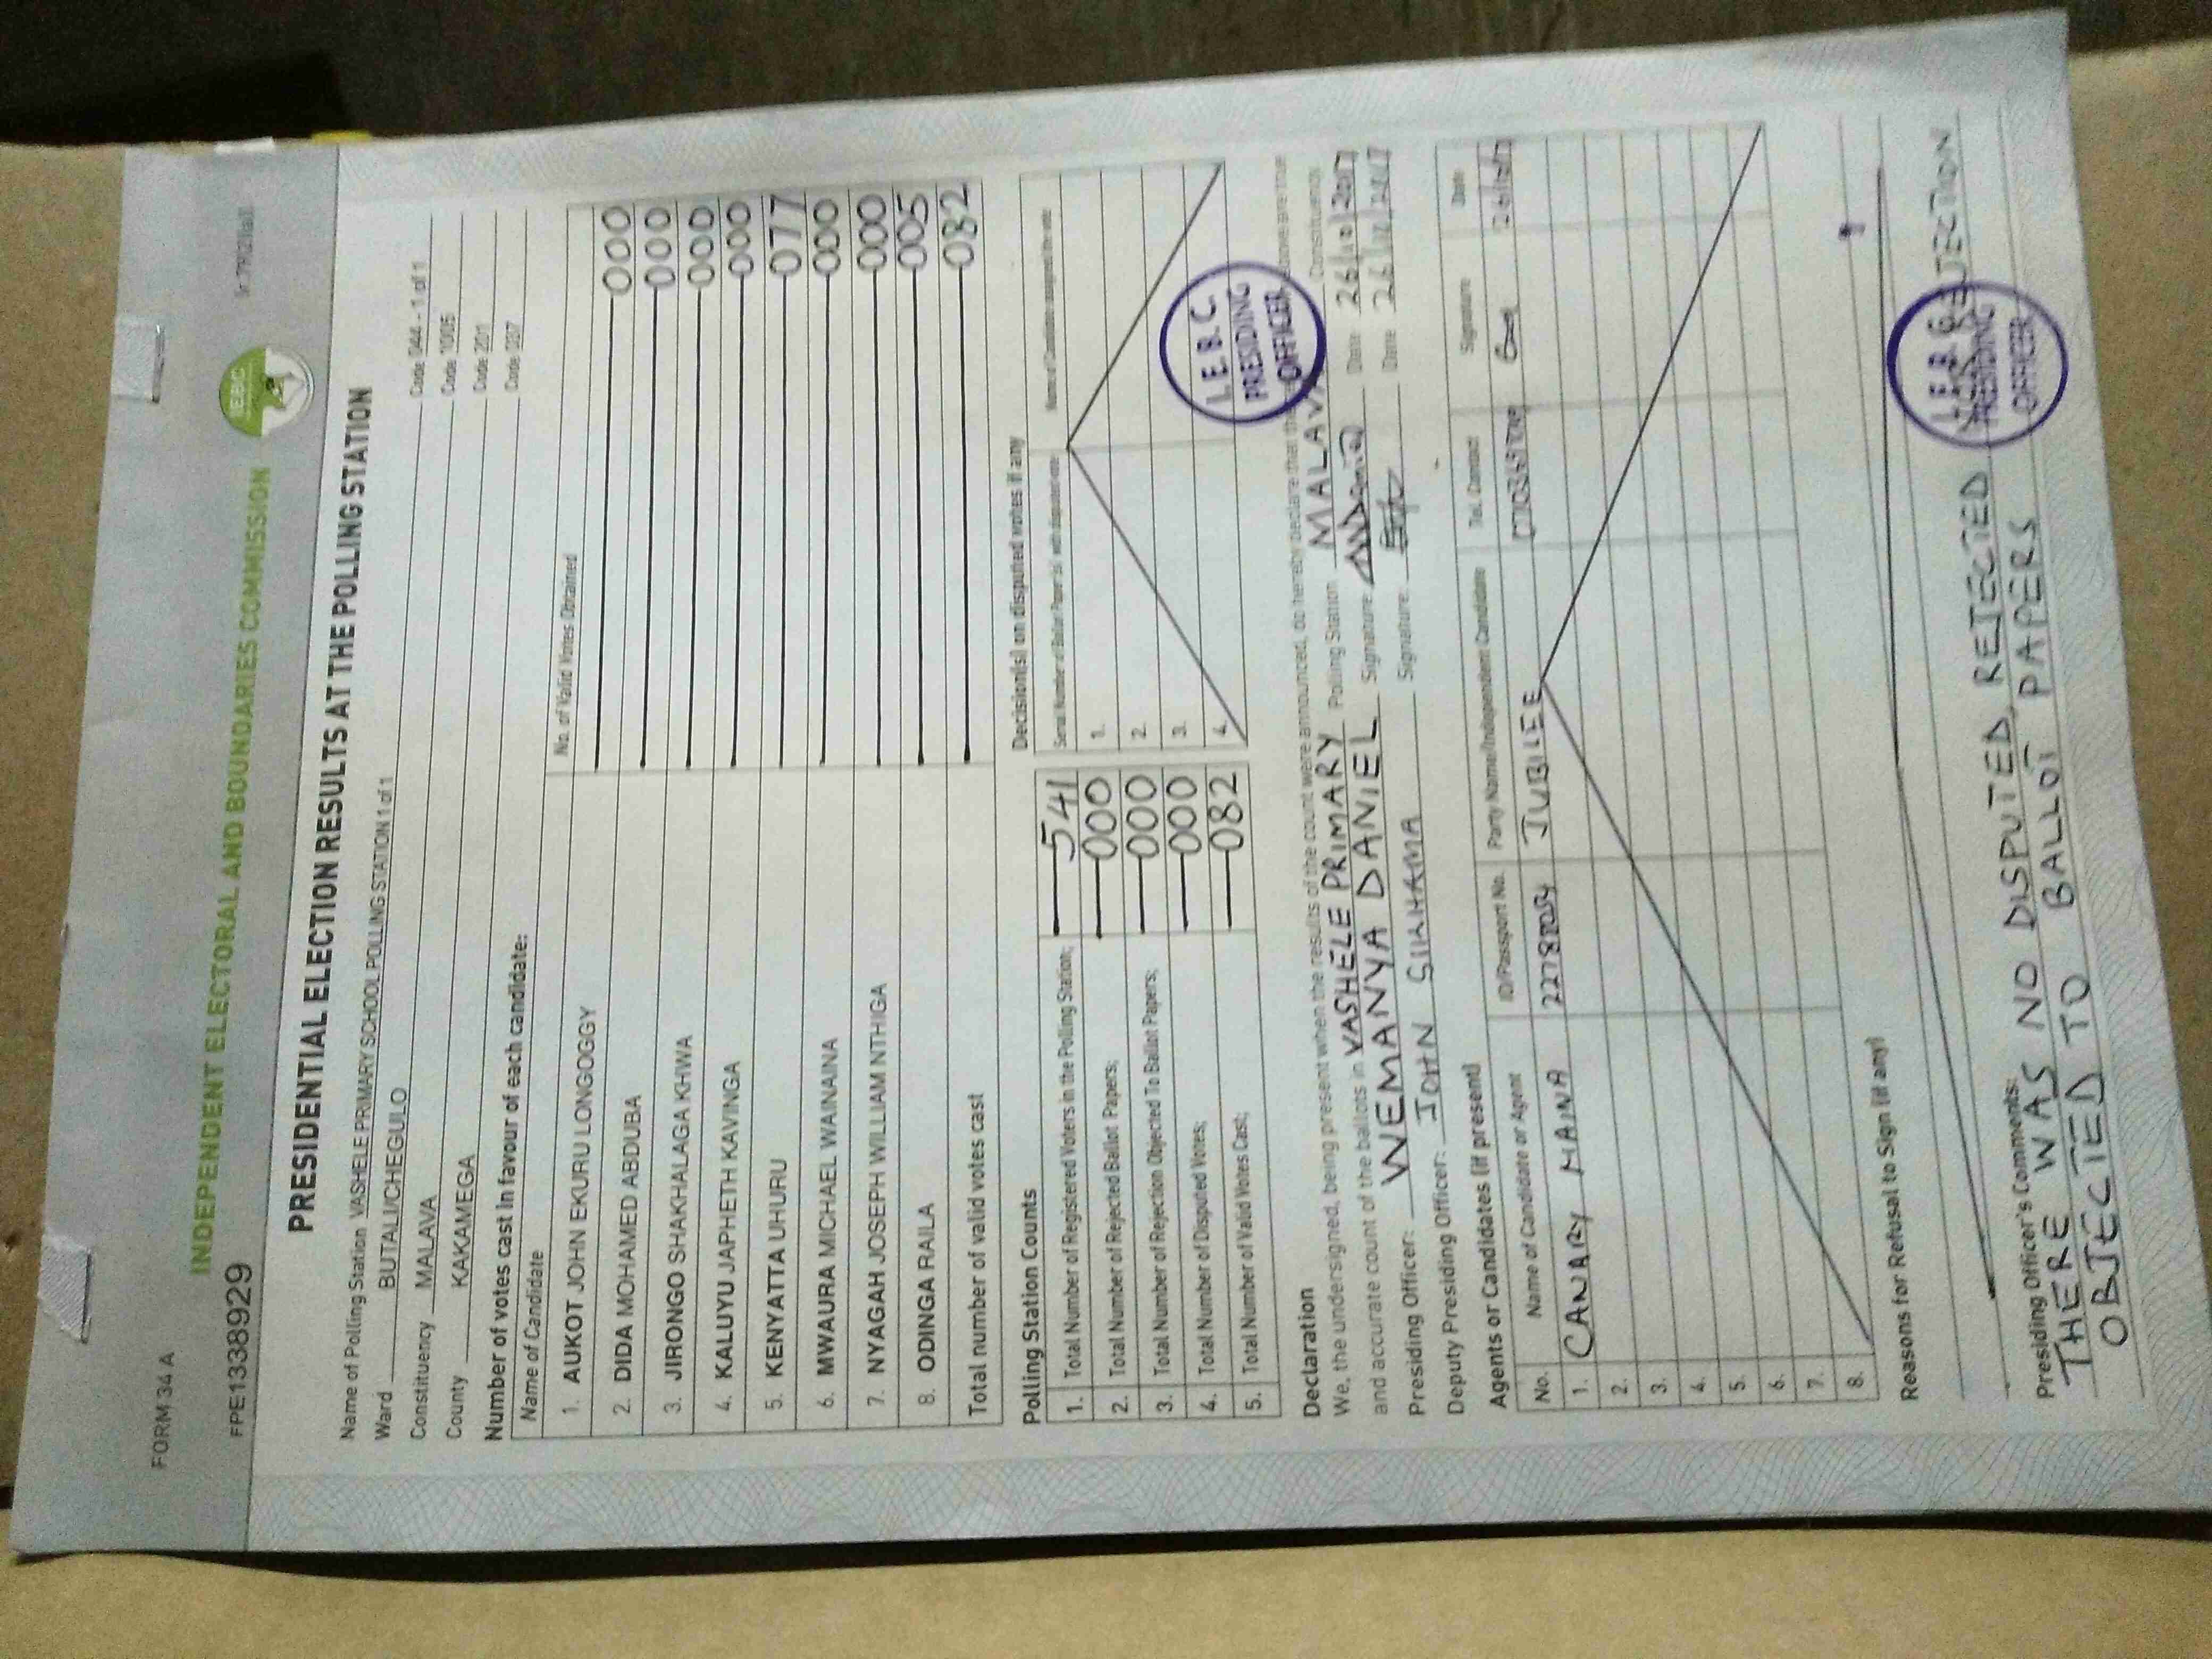 FORM 34 A
INDEPENDENT ELECTORAL AND BOUNDARIES COMMISSION
IEBC
FPE1338929
PRESIDENTIAL ELECTION RESULTS AT THE POLLING STATION
Name of Polling Station VASHELE PRIMARY SCHOOL POLLING STATION 1 of 1 Code 044 - 1 of 1
Ward BUTALI/CHEGULO Code 1005
Constituency MALAVA Code 201
County KAKAMEGA Code 037
Number of votes cast in favour of each candidate:
Name of Candidate No. of Valid Votes Obtained
1. AUKOT JOHN EKURU LONGOGGY 000
2. DIDA MOHAMED ABDUBA 000
3. JIRONGO SHAKHALAGA KHWA 000
4. KALUYU JAPHETH KAVINGA 000
5. KENYATTA UHURU 077
6. MWAURA MICHAEL WAINAINA 000
7. NYAGAH JOSEPH WILLIAM NTHIGA 000
8. ODINGA RAILA 005
Total number of valid votes cast 082
Polling Station Counts
1. Total Number of Registered Voters in the Polling Station; 541
2. Total Number of Rejected Ballot Papers; 000
3. Total Number of Rejection Objected To Ballot Papers; 000
4. Total Number of Disputed Votes; 000
5. Total Number of Valid Votes Cast; 082
Decision(s) on disputed votes if any
1.
2.
3.
4.
I.E.B.C.
PRESIDING
OFFICER
Declaration
We, the undersigned, being present when the results of the count were announced, do hereby declare that the above are true
and accurate count of the ballots in VASHELE PRIMARY Polling Station MALAVA Constituency
Presiding Officer: WEMANYA DANIEL Signature Date 26/10/2017
Deputy Presiding Officer: JOHN Signature Date 26/10/2017
Agents or Candidates (if present)
No. Name of Candidate or Agent ID/Passport No. Party Name/Independent Candidate Tel. Contact Signature Date
1. CANARY MAINA JUBILEE
2.
3.
4.
5.
6.
7.
8.
Reasons for Refusal to Sign (if any)
Presiding Officer's Comments:
THERE WAS NO DISPUTED, REJECTED
OBJECTED TO BALLOT PAPERS
I.E.B.C.
PRESIDING
OFFICER